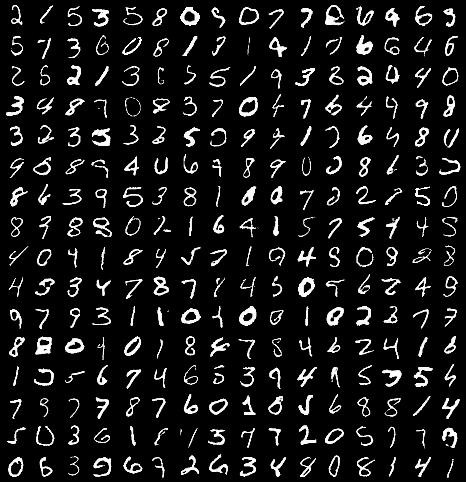 2 1 5 3 5 8 0 9 0 7 7 2 6 9 6 3
5 7 3 6 0 8 1 3 1 4 1 7 6 6 4 6
2 6 2 1 3 6 5 5 1 9 3 8 2 0 4 0
3 4 8 7 0 8 3 7 0 4 7 6 4 9 9 8
3 2 3 5 3 2 5 0 9 9 1 7 6 4 8 0
9 0 8 9 4 0 6 7 8 9 0 2 8 6 3 2
8 6 3 9 5 3 8 1 0 0 7 2 2 1 5 0
8 9 8 8 0 2 1 6 4 1 5 7 5 4 4 5
4 0 9 1 8 4 5 7 1 9 4 5 0 9 2 8
4 3 3 4 7 8 7 8 4 5 0 5 6 2 4 9
9 7 9 3 1 1 0 4 0 0 1 0 2 3 7 7
8 2 0 4 0 1 8 4 7 8 4 6 2 4 1 6
1 5 5 6 7 4 6 5 3 9 4 9 5 3 5 4
7 9 7 7 8 7 6 0 1 8 5 6 8 8 1 4
5 0 3 6 1 8 1 3 7 7 2 0 5 7 7 3
0 6 3 9 6 7 2 6 3 4 8 0 8 1 4 1